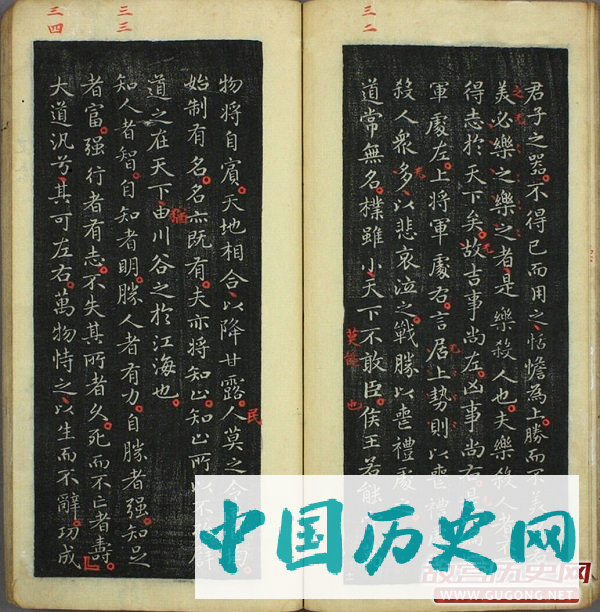 三二
君子之器不得已而用之恬憺為上勝而不美
美必樂之樂之者是樂殺人也夫樂殺人者
得志於天下矣故吉事尚左凶事尚右
軍處左上將軍處右言居上勢則以喪禮
殺人衆多以悲哀泣之戰勝以喪禮處
道常無名樸雖小天下不敢臣侯王若能
莫能
也
三三
三四
物將自賓天地相合以降甘露人莫之令
民
始制有名名亦既有夫亦將知止知止所以不
道之在天下由川谷之於江海也
猶
知人者智自知者明勝人者有力自勝者强知足
者富强行者有志不失其所者久死而不亡者壽
大道汎兮其可左右萬物恃之以生而不辭功成
中国历史网
故宫历史网
WWW.GUGONG.NET